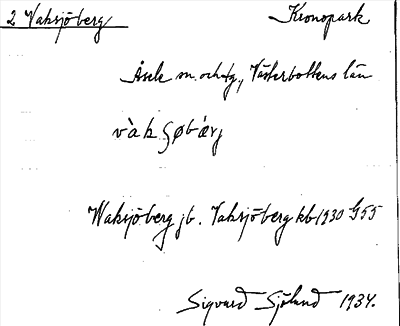 2 Vaksjöberg Kronopark
Åsele m. o. htg, Västerbottens län
vàkʂøbærj
Waksjöberg jb. Vaksjöberg kb 1930 G55
Sigvard Sjölund 1934.